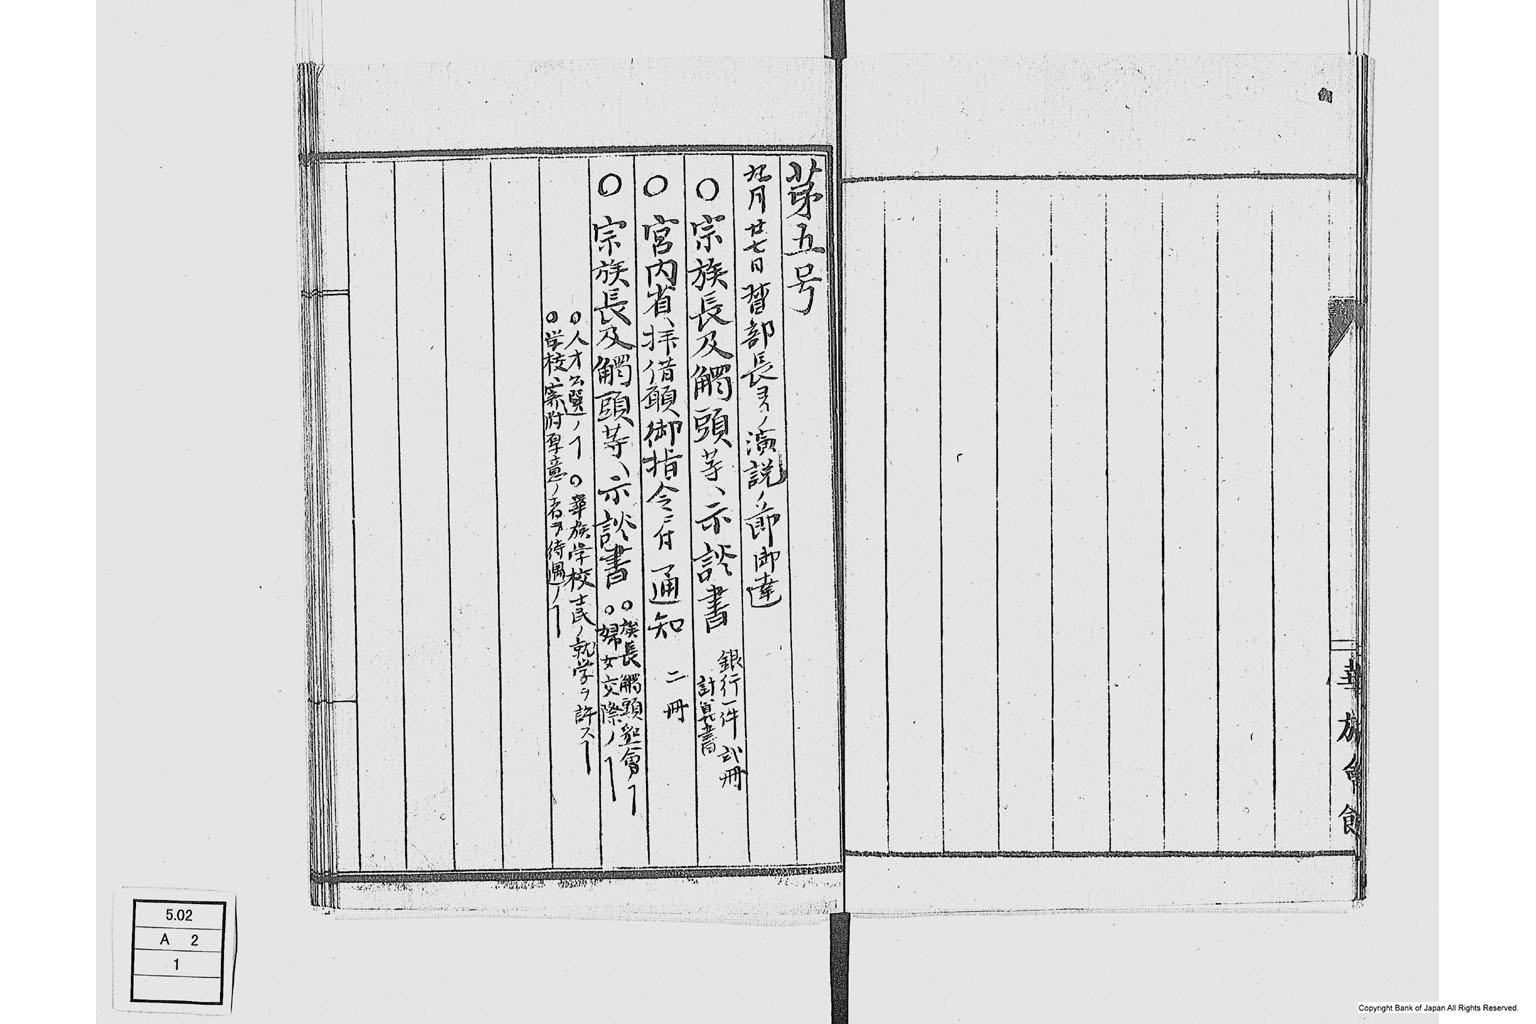 華族會館
第五号
九月廿七日督部長ヨリノ演説ノ節御達
○宗族長及觸頭等ヘ示談書 銀行一件 弐冊
計算書
○宮内省ヘ拝借願御指令ニ付通知 二冊
○宗族長及觸頭等ヘ示談書 ○族長觸頭集會ノヿ
○婦女交際ノヿ
○人才公選ノヿ ○華族学校士民ノ就学ヲ許スヿ
○学校ヘ寄附厚意ノ者ヲ待遇ノヿ
5.02
A 2
1
Copyright Bank of Japan All Rights Reserved.